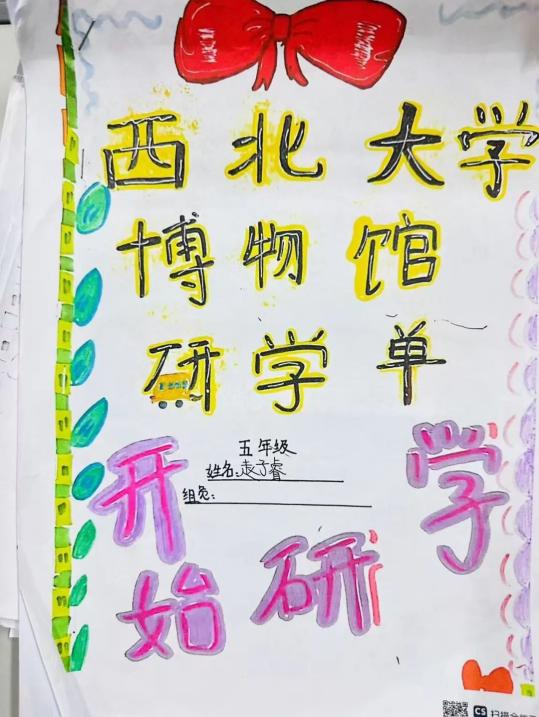 西北大学
博物馆
研学单
五年级
姓名:赵子睿
组名:
开始研学
CS 扫描全能